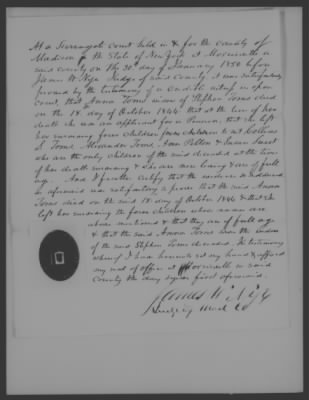 At a Surrogate court held in & for the county of
Madison in the State of New York at Morrisville in
said county on the 30th day of January 1850 before
James W. Nye Judge of said County, it was satisfactorily
proved by the testimony of a credible witness in open
court that Anna Toms widow of Stephen Toms died
on the 18 day of October 1844 that at the time of her
death she was an applicant for a Pension, that she left
her surviving four children to wit
Toms Alexander Toms, Ann & Susan
who are the only children of the said deceased at the time
of her death surviving & who are now living & are of full
age. And I further certify that the evidence so adduced
as aforesaid was satisfactory to prove that the said Anna
Toms died on the said 18 day of October 1844 & that she
left her surviving the four children whose names are
above mentioned & that they are of full age
& that the said Anna Toms was the widow
of the said Stephen Toms deceased. In testimony
whereof I have hereunto set my hand & affixed
my seal of office at Morrisville in said
county the day & year first aforesaid.
James W. Nye
Judge of Mad Co